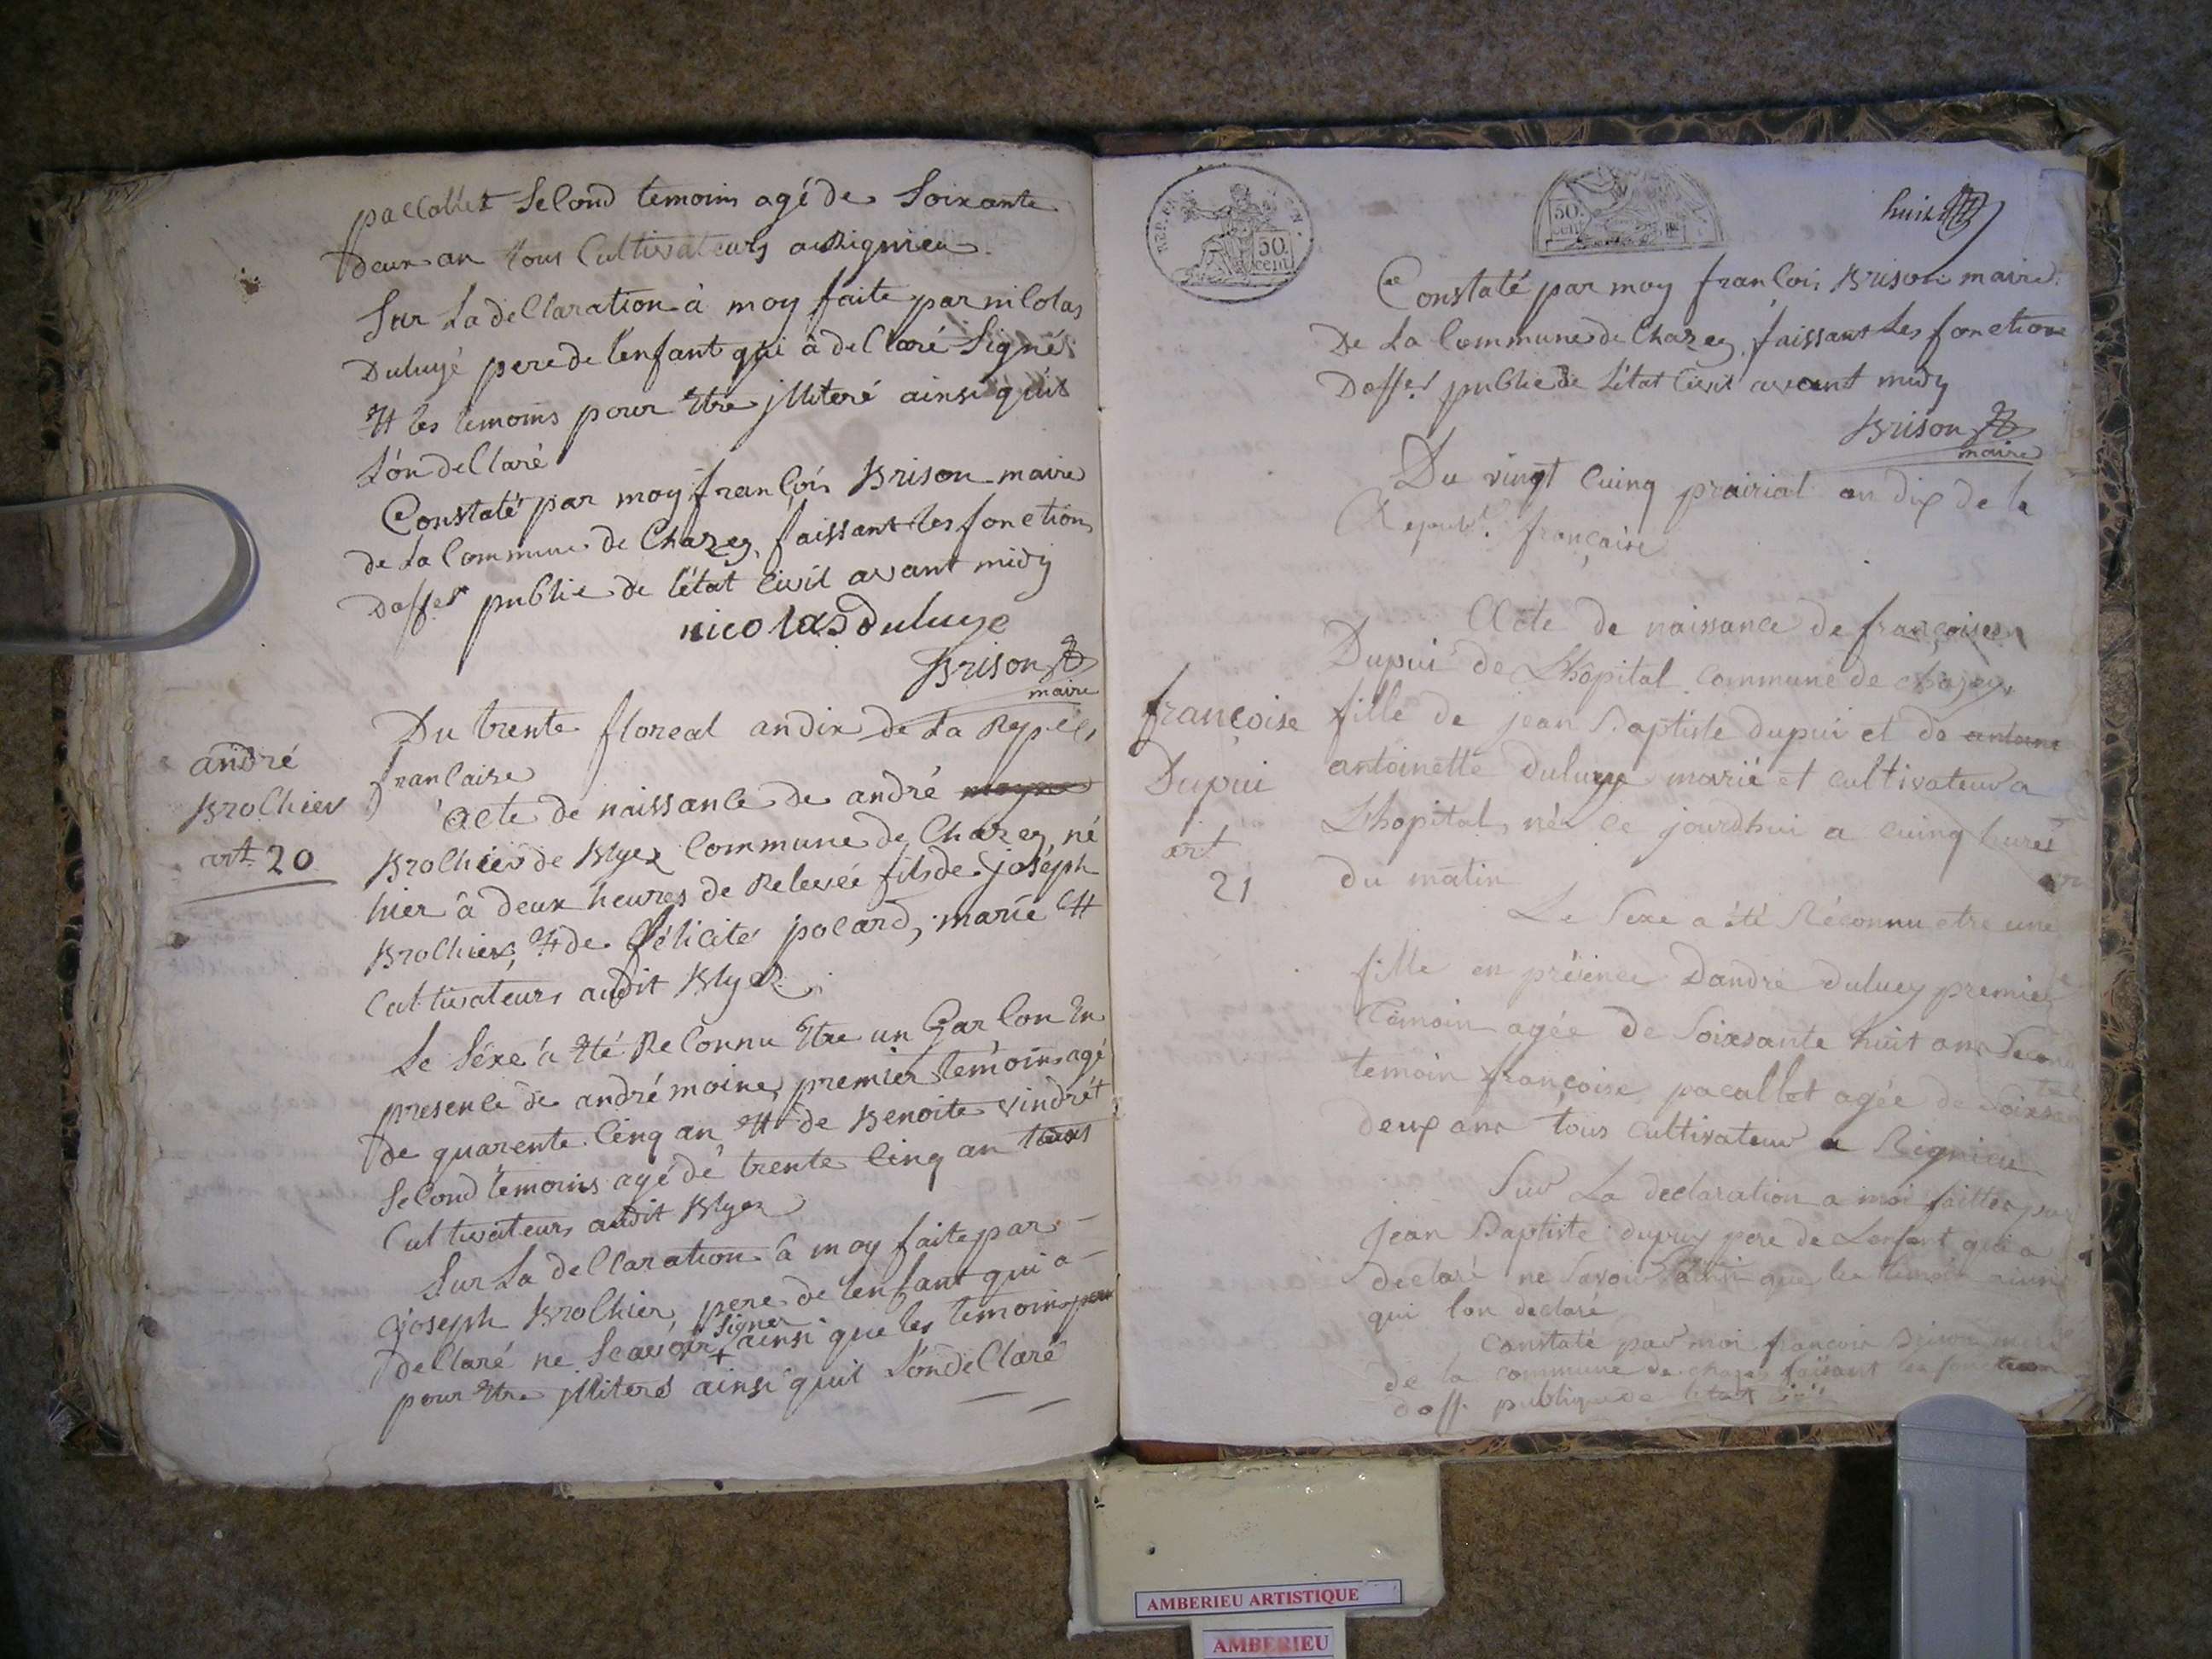 pacollet second temoins agé de soixante
deux an tous Cultivateurs a Rignieu
Sur La declaration à moy faite par nicolas
Duluyé pere de lenfant qui à declaré signé
Et les temoins pour Etre jlliteré ainsi quil
L'on declaré
Constaté par moy françois Brison maire
de La Commune de Chazey, faissant les fonction
Doffer publie de l'état Civil avant midy
nicolas duluye
Brison
maire
Du trente floreal an dix de La Repce,
francaise
andré
Brochier
art. 20
Acte de naissance de andré moyne
Brochier de Blyez Commune de Chazey, né
hier à deux heures de Relevée fils de joséph
Brochier, Et de félicité pocard, marié Et
Cultivateurs audit Blyez
Le séxe à Eté Reconnu Etre un Garcon En
presence de andré moine, premier temoins agé
de quarente cinq an, Et de Benoite vindrét
second temoins agé de trente cinq an tous
Cultivateurs audit Blyez
Sur La declaration à moy faite par
joseph Brochier, pere de lenfant qui a
declaré ne scavoir signer ainsi que les temoins pour
pour Etre jlliteré ainsi quil L'on declaré
REP. FRA
50.
cent
50.
cent
huit
Constaté par moy francois Brison maire
De La Commune de Chazey, faissant Les fonctions
Doffer publie de L'état Civil avant midy
Brison
maire
Du vingt cuinq prairial an dix de la
Republ. française
Acte de naissance de françoise
Dupui de Lhôpital commune de chazey,
françoise
Dupui
art
21
fille de jean Baptiste dupui et de antoine
antoinette duluye marié et cultivateur a
Lhopital, née ce jourdhui a cuinq heures
du matin
Le Sexe a été Réconnu etre une
fille en présence Dandré duluey premier
temoin agée de Soixsante huit ans Second
temoin françoise pacallet agée de soixsan
deux ans tous cultivateur a Rignieu
Sur La declaration a moi faitte par
jean Baptiste dupuy pere de Lenfent qui a
declaré ne Savoir ainsi que les temoin ainsi
qui lon declaré
Constaté par moi francois Brison maire
de la commune de chazey faisant les fonction
doff. publique de letat civil
AMBERIEU ARTISTIQUE
AMBERIEU